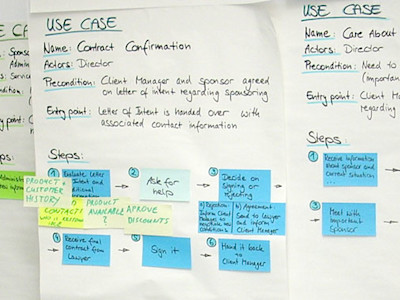 USE CASE
Name: Contract Confirmation
Actors: Director
Precondition: Client Manager and sponsor agreed
on letter of intent regarding sponsoring
Entry point: Letter of Intent is handed over with
associated contact information
Steps:
1 Evaluate Letter
of Intent and
PRODUCT +
CUSTOMER
HISTORY
2 Ask for
help
3 Decide on
signing or
rejecting
CONTACT?
PRODUCT
AVAILABLE
?
APROVE
DISCOUNTS
a) Rejection:
Inform Client
Manager to
conditions
b) Agreement:
Send to Lawyer
and inform
Client Manager
4 Receive final
contract from
Lawyer
5 Sign it
6 Hand it back
to Client Manager
USE CASE
Name: Care About
Actors: Director
Precondition: Need to
(Important
Entry point: Client M
regarding
Steps:
1 Receive Information
about Sponsor and
current situation
...
3 Meet with
Important
Sponsor